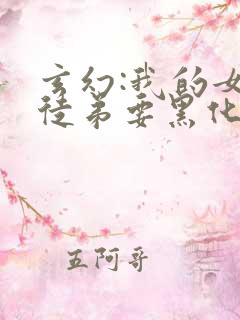 玄幻:我的女
徒弟要黑化
五阿哥